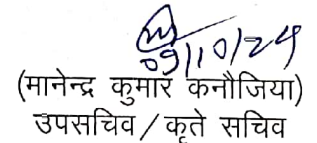 09/10/24
(मानेन्द्र कुमार कनौजिया)
उपसचिव / कृते सचिव